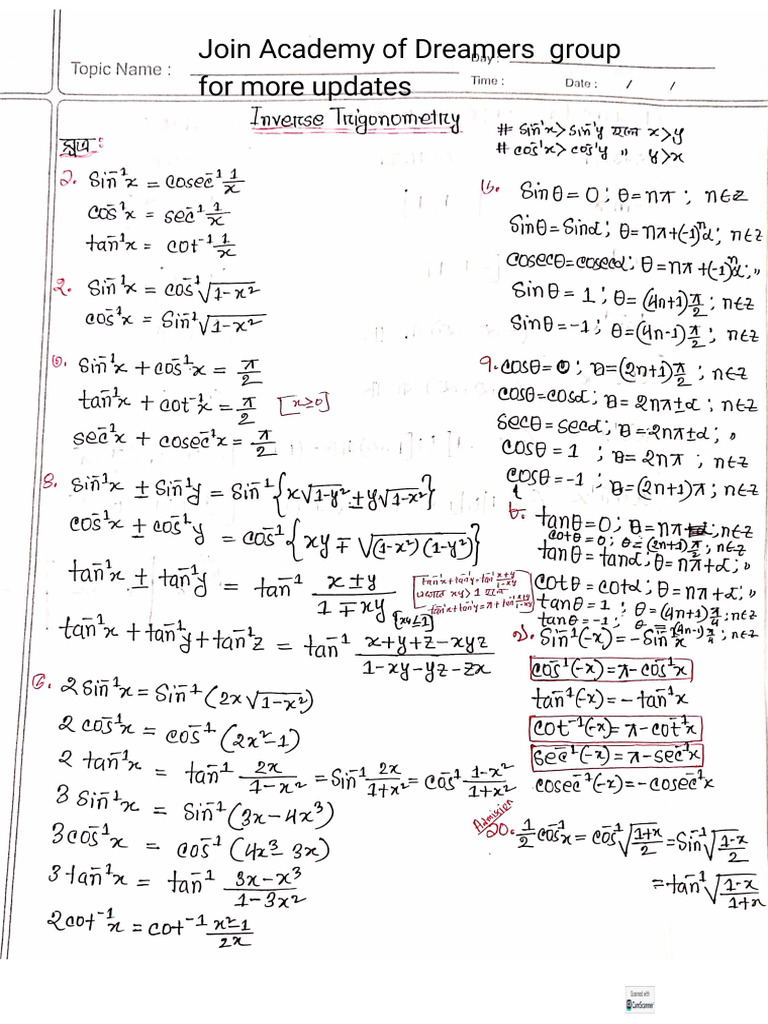 Join Academy of Dreamers group
for more updates
Topic Name :
Day :
Time :
Date : / /
Inverse Trigonometry
সূত্র:
# sin⁻¹x > sin⁻¹y হলে x>y
# cos⁻¹x > cos⁻¹y " y>x
১. sin⁻¹x = cosec⁻¹ 1/x
cos⁻¹x = sec⁻¹ 1/x
tan⁻¹x = cot⁻¹ 1/x
২. sin⁻¹x = cos⁻¹√(1-x²)
cos⁻¹x = sin⁻¹√(1-x²)
৩. sin⁻¹x + cos⁻¹x = π/2
tan⁻¹x + cot⁻¹x = π/2 [x≥0]
sec⁻¹x + cosec⁻¹x = π/2
৪. sin⁻¹x ± sin⁻¹y = sin⁻¹{x√(1-y²) ± y√(1-x²)}
cos⁻¹x ± cos⁻¹y = cos⁻¹{xy ∓ √((1-x²)(1-y²))}
tan⁻¹x ± tan⁻¹y = tan⁻¹ (x±y)/(1∓xy) [xy≤1]
tan⁻¹x + tan⁻¹y = tan⁻¹ (x+y)/(1-xy)
xy>1 হলে
tan⁻¹x + tan⁻¹y = π + tan⁻¹ (x+y)/(1-xy)
tan⁻¹x + tan⁻¹y + tan⁻¹z = tan⁻¹ (x+y+z-xyz)/(1-xy-yz-zx)
৫. 2 sin⁻¹x = sin⁻¹(2x√(1-x²))
2 cos⁻¹x = cos⁻¹(2x²-1)
2 tan⁻¹x = tan⁻¹ 2x/(1-x²) = sin⁻¹ 2x/(1+x²) = cos⁻¹ (1-x²)/(1+x²)
3 sin⁻¹x = sin⁻¹(3x-4x³)
3cos⁻¹x = cos⁻¹(4x³-3x)
3tan⁻¹x = tan⁻¹ (3x-x³)/(1-3x²)
2cot⁻¹x = cot⁻¹ (x²-1)/2x
৬. sinθ=0; θ=nπ; n∈z
sinθ=sinα; θ=nπ+(-1)ⁿα; n∈z
cosecθ=cosecα; θ=nπ+(-1)ⁿα; "
sinθ=1; θ=(4n+1)π/2; n∈z
sinθ=-1; θ=(4n-1)π/2; n∈z
৭. cosθ=0; θ=(2n+1)π/2; n∈z
cosθ=cosα; θ=2nπ±α; "
secθ=secα; θ=2nπ±α; "
cosθ=1; θ=2nπ; n∈z
cosθ=-1; θ=(2n+1)π; n∈z
৮. tanθ=0; θ=nπ; n∈z
cotθ=0; θ=(2n+1)π/2; n∈z
tanθ=tanα; θ=nπ+α; "
cotθ=cotα; θ=nπ+α; "
tanθ=1; θ=(4n+1)π/4; n∈z
tanθ=-1; θ=(4n-1)π/4; n∈z
৯. sin⁻¹(-x) = -sin⁻¹x
cos⁻¹(-x) = π-cos⁻¹x
tan⁻¹(-x) = -tan⁻¹x
cot⁻¹(-x) = π-cot⁻¹x
sec⁻¹(-x) = π-sec⁻¹x
cosec⁻¹(-x) = -cosec⁻¹x
Admision
১০. 1/2 cos⁻¹x = cos⁻¹√((1+x)/2) = sin⁻¹√((1-x)/2)
= tan⁻¹√((1-x)/(1+x))
Scanned with
CamScanner